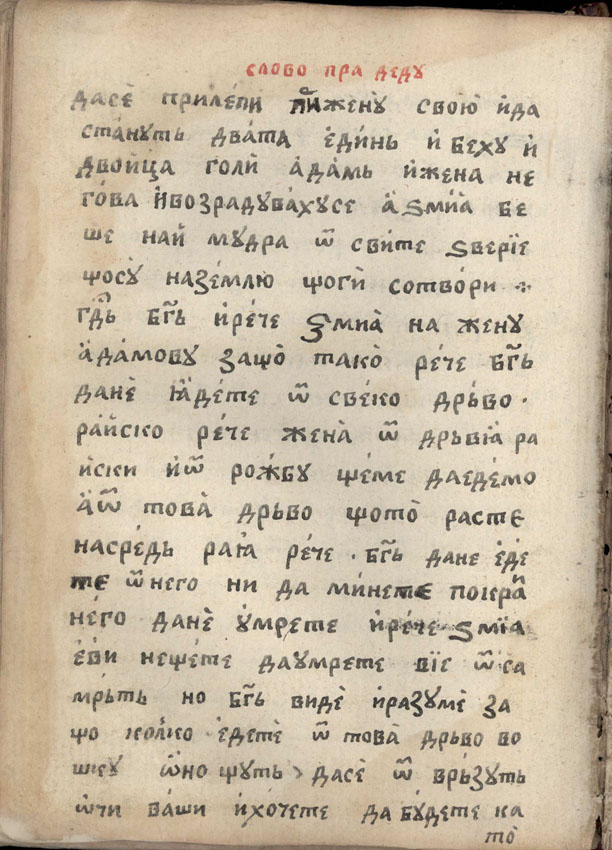 слово пра деду
дасѐ прилѐпи жену̀ свою̀ и҆да
ста́нуть два́та є҆ди́нь и҆ беху и҆
двои҆ца голи҆ а҆да́мь и҆жена не
го́ва и҆возрадува́хусе а҆ ѕмїа̀ бе
ше наи҆ мудра ѿ сви́те ѕверїе
щосу̀ назе́млю щоги҆ сотво́ри ⁘
гдⷭ҇ь бг҃ь и҆ре́че ѕмиа̀ на жену
а҆да́мову защо̀ тако̀ ре́че бг҃ь
данѐ ꙗ҆де́те ѿ све́ко дрьво ·
раи҆ско ре́че жена̀ ѿ дрьвїа̀ ра
и҆ски и҆ѿ рожбу ще́ме даеде́мо
а҆ѿ това̀ дрьво щото̀ расте
насре́дь раꙗ̀ ре́че · бг҃ь дане є҆де́
те ѿнего ни да ми́нете покра̑и
не́го данѐ у҆мрете и҆ре́че ѕмїа
є҆ви нещете даумрете вїе ѿ са
мрьть но бг҃ь видѐ и҆разумѐ за
що колко є҆детѐ ѿ това̀ дрьво во
ѡ҆но щуть дасѐ ѿ врьзуть
ѡ҆чи ва́ши и҆хо́чете да бу́дете ка
то̀